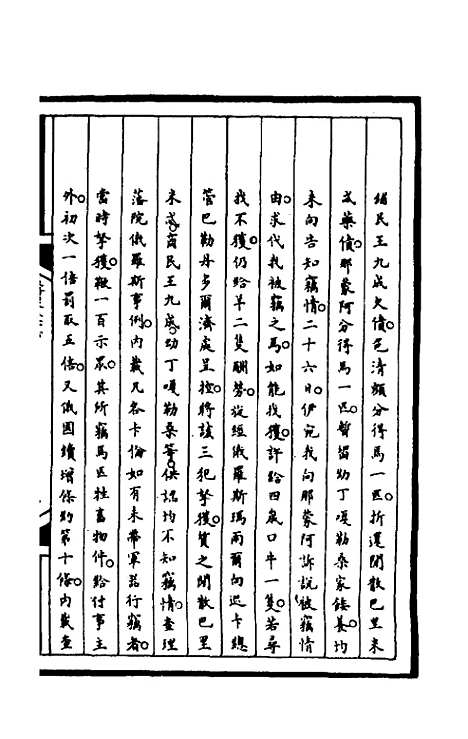 緝民王九成欠債色清額分得馬一匹折還閒散巴里米
忒藥債那蒙阿分得馬一匹暫留幼丁嘎勒桑家餧養均
未向告知竊情二十六日伊宛我向那蒙阿訴説被竊情
由求代我被竊之馬如能找獲許給四歲口牛一隻若尋
找不獲仍給羊二隻酬勞旋經俄羅斯瑪雨爾向迟卡總
管巴勒丹多爾濟處呈控將該三犯拏獲質之閒散巴里
米忒商民王九成幼丁嘎勒桑等供認均不知竊情查理
藩院俄羅斯事例内載凡各卡倫如有未帶軍器行竊者
當時拏獲鞭一百示眾其所竊馬匹牲畜物件給付事主
外初次一倍罰取五倍又俄國續增條約第十條内載查